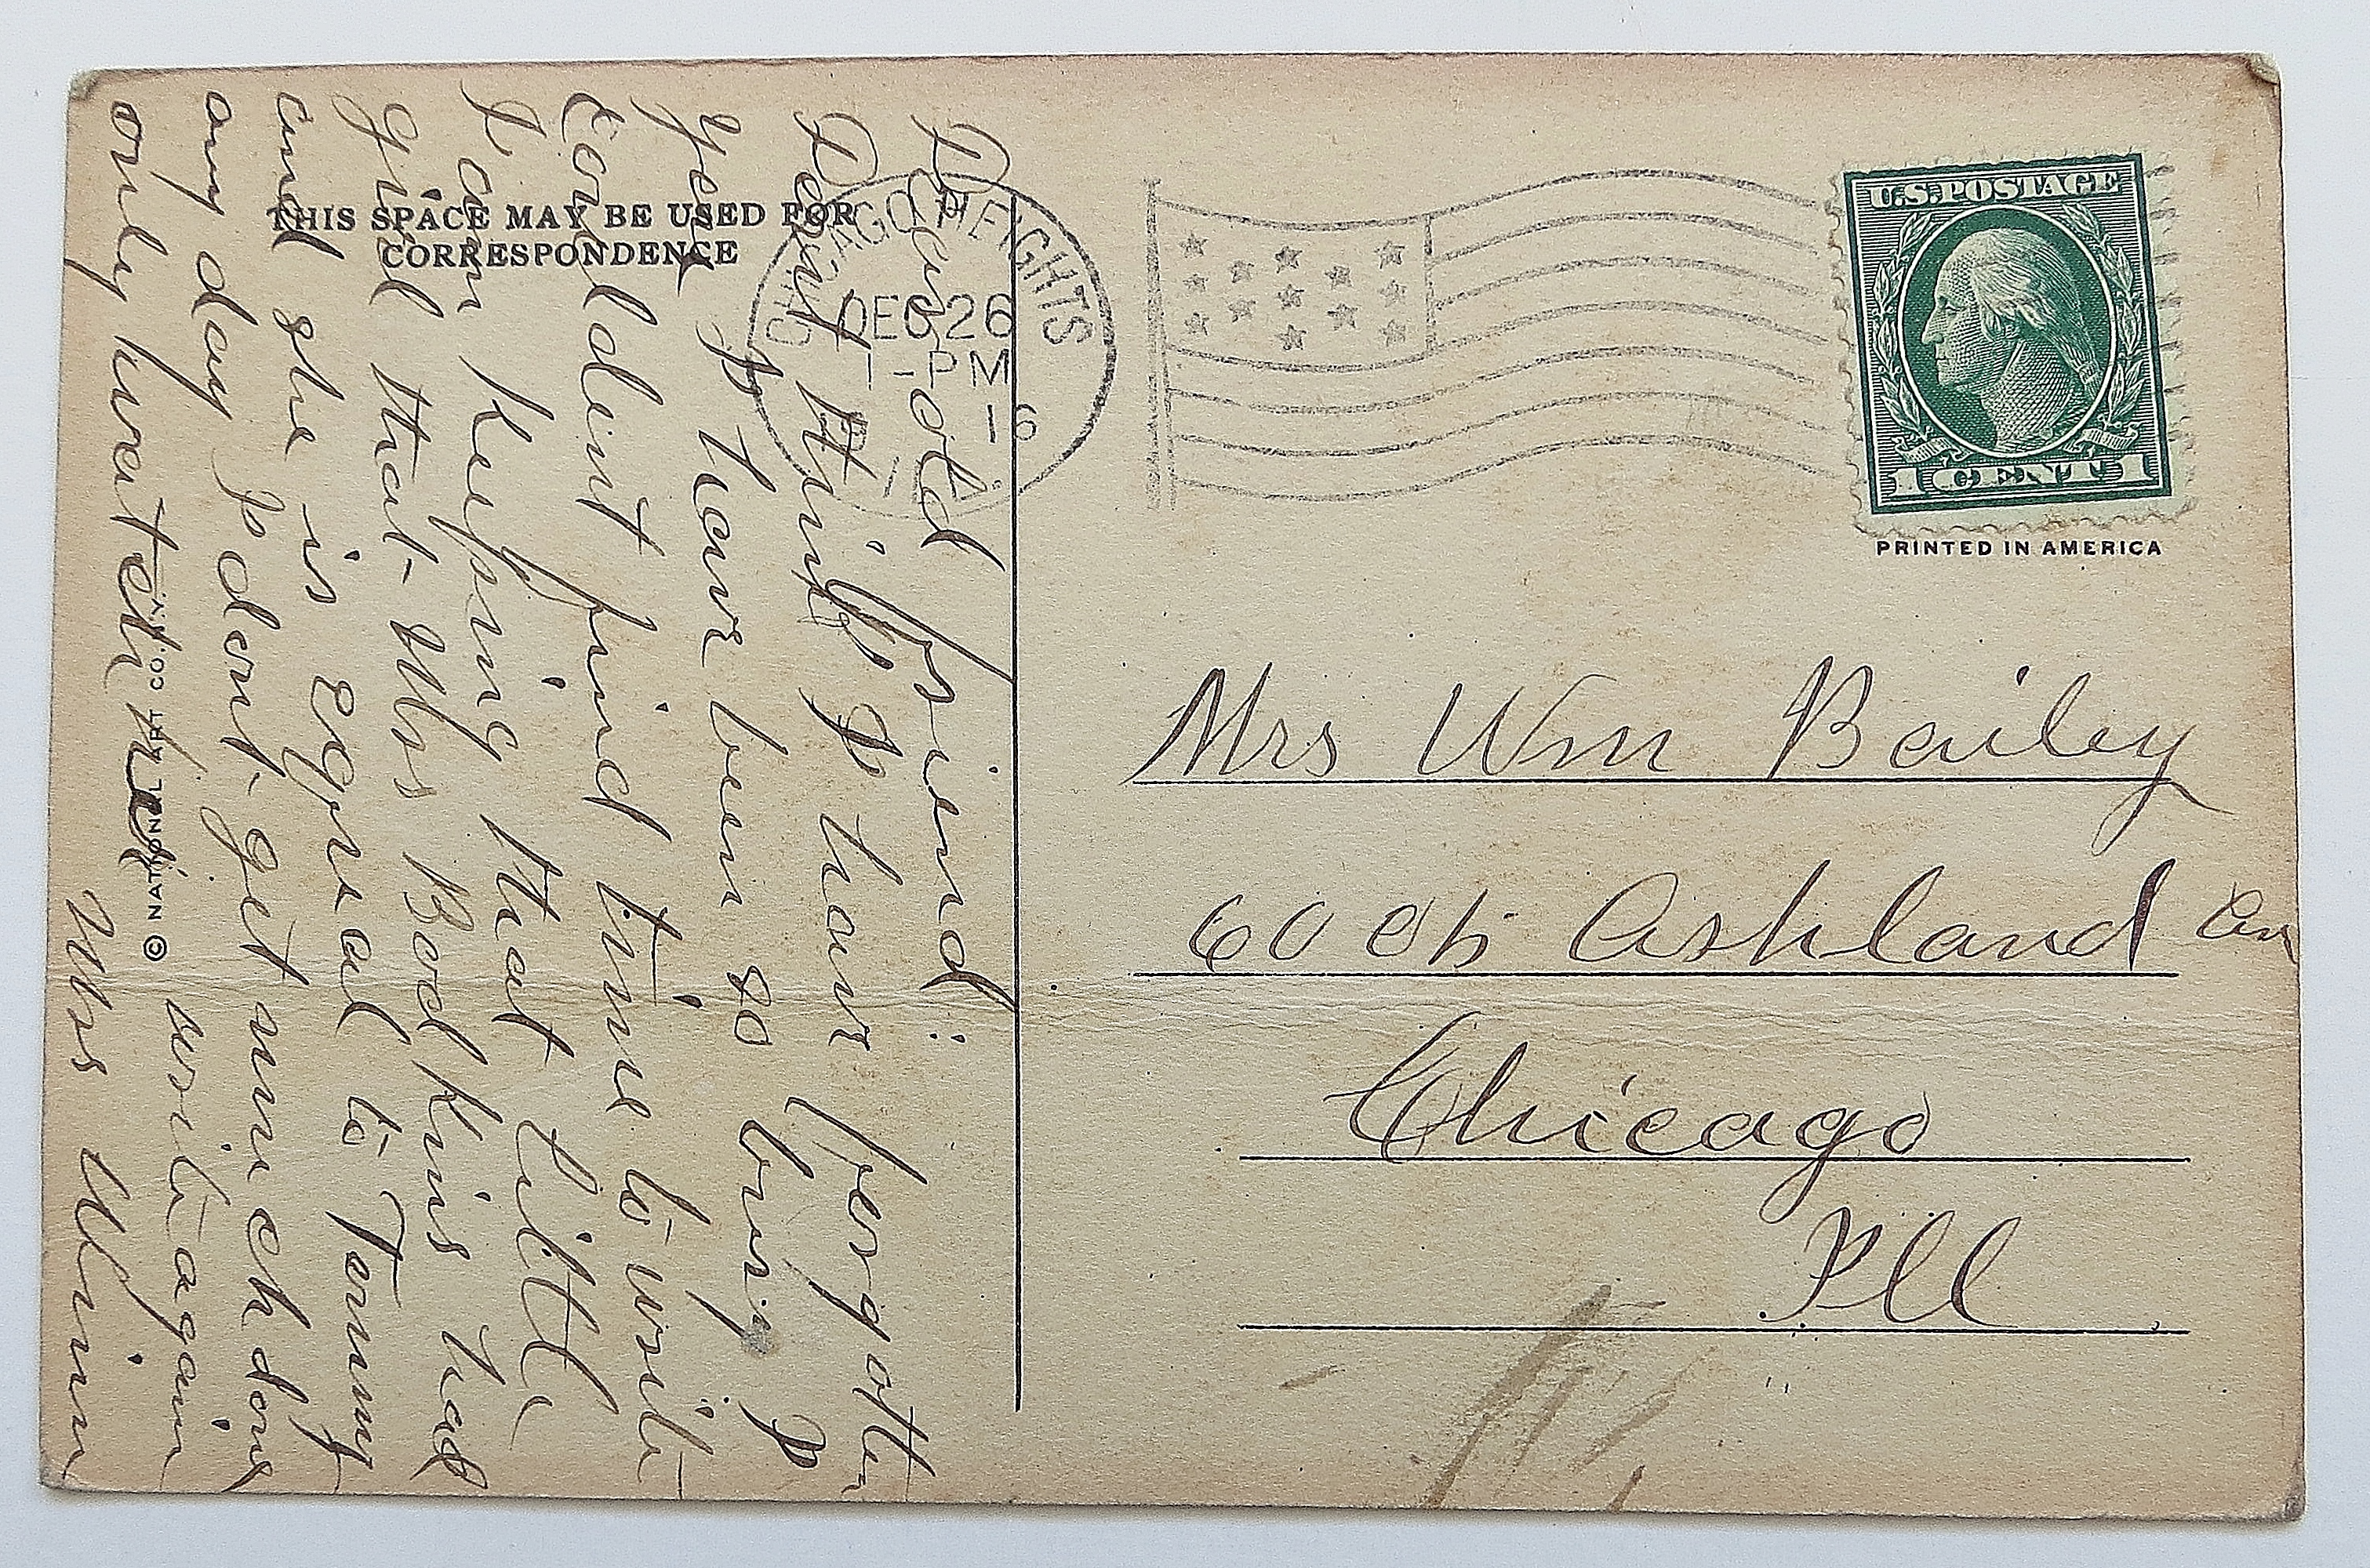 THIS SPACE MAY BE USED FOR
CORRESPONDENCE
Dear old friend:
Dont think I have forgotten
you I have been so busy I
Couldent find time to write
I am Keeping that little
girl that Mrs Bodkins had
and she is equral to Tommy
any day I dont get much done
only waten her write again
Mrs Winn
© NATIONAL ART CO. N.Y.
CHICAGO HEIGHTS
DEC 26
1-PM
16
ILL.
U.S. POSTAGE
1 CENT 1
PRINTED IN AMERICA
Mrs Wm Bailey
Ashland
Chicago
Ill